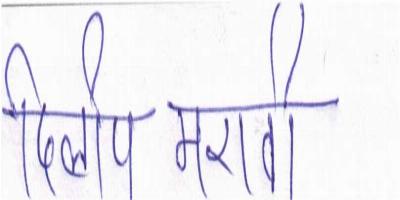 दिलीप मरावी